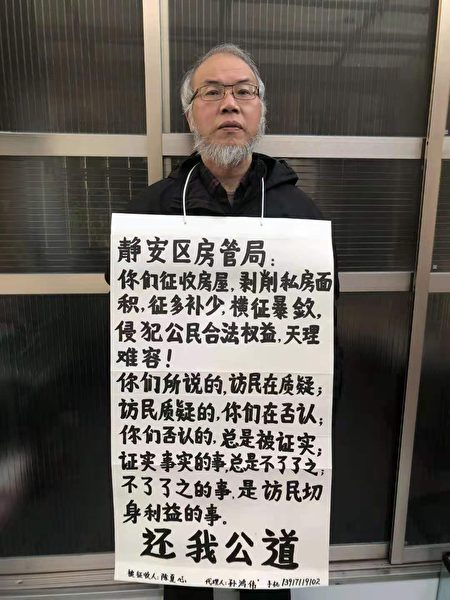 静安区房管局:
你们征收房屋,剥削私房面
积,征多补少,横征暴敛,
侵犯公民合法权益,天理
难容!
你们所说的,访民在质疑;
访民质疑的,你们在否认;
你们否认的,总是被证实;
证实事实的事,总是不了了之;
不了了之的事,是访民切
身利益的事.
还我公道
被征收人:陈夏 代理人:孙鸿伟 手机13917119102